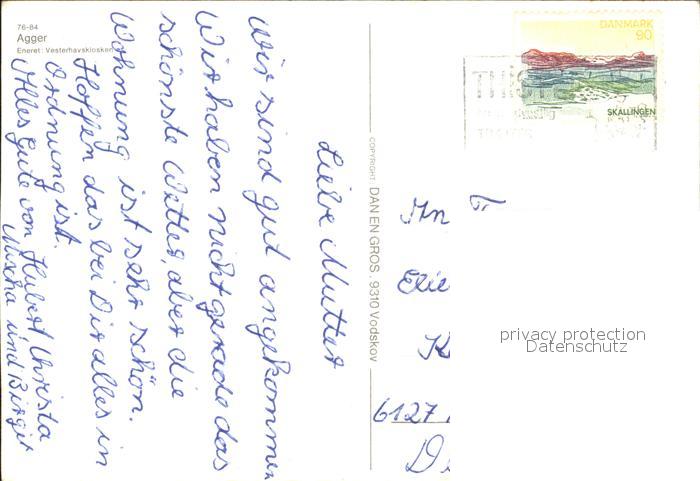 76-84
Agger
Eneret: Vesterhavskiosken
Liebe Mutter
Wir sind gut angekommen
Wir haben nicht gerade das
schönste Wetter, aber die
Wohnung ist sehr schön.
Hoffen das bei Dir alles in
Ordnung ist.
Alles gute von Hubert Christa
Mischa und Birgit
COPYRIGHT DAN EN GROS . 9310 Vodskov
DANMARK
90
SKALLINGEN
An Fr
K
6127
privacy protection
Datenschutz